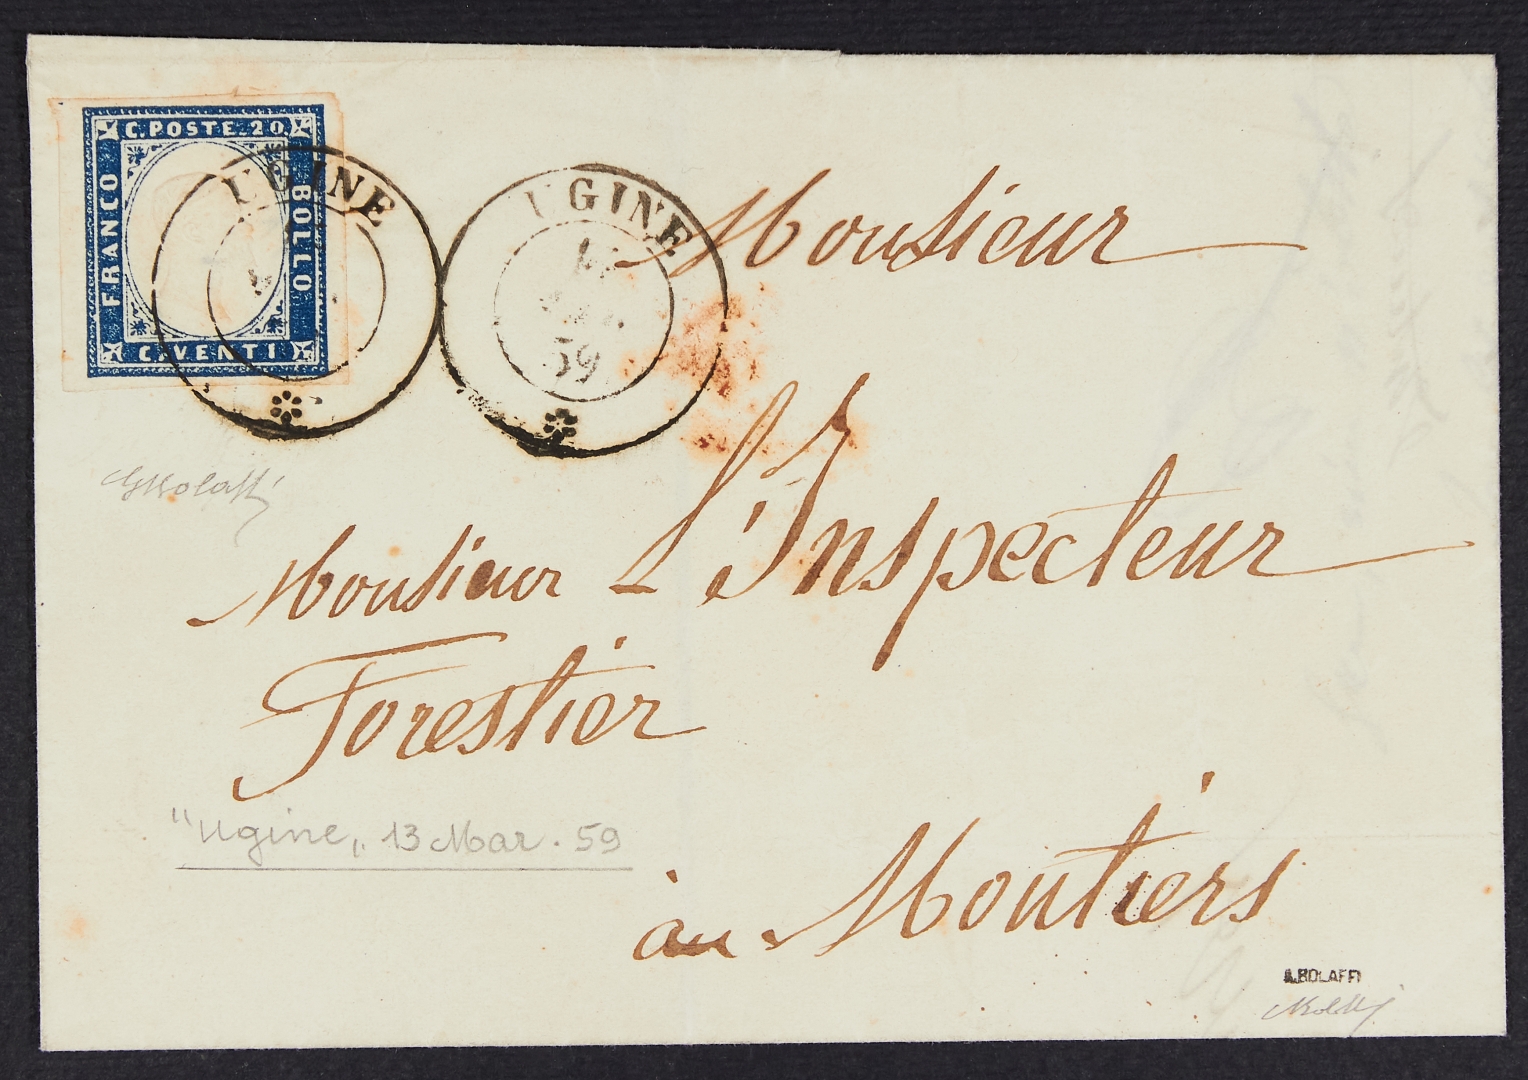 C. POSTE. 20
FRANCO
BOLLO
C. VENTI
UGINE
UGINE
59
Monsieur
Monsieur L'Inspecteur
Forestier
"Ugine„ 13 Mar. 59
à Moutiers
A. BOLAFFI